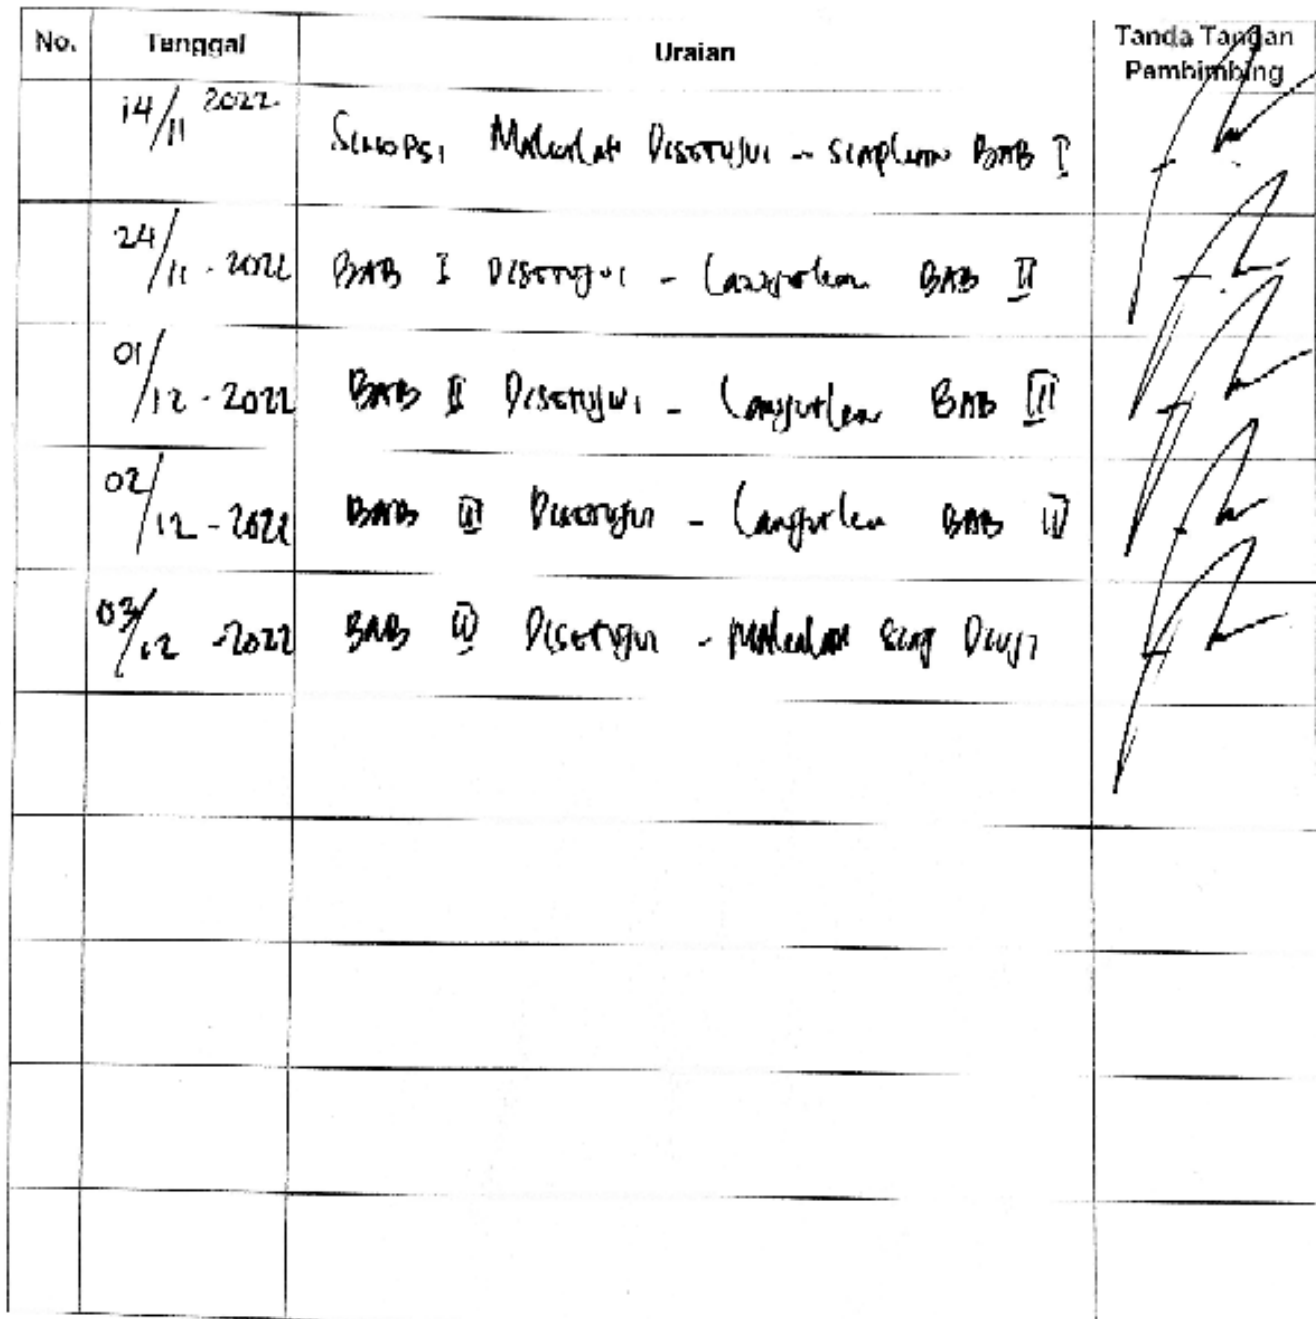 No. Tanggal Uraian Tanda Tangan Pembimbing
14/11 2022 Sinopsi Makalah Disetujui - siapkan BAB I
24/11 - 2022 BAB I Disetujui - Lanjutkan BAB II
01/12 - 2022 BAB II Disetujui - Lanjutkan BAB III
02/12 - 2022 BAB III Disetujui - Lanjutkan BAB IV
03/12 - 2022 BAB IV Disetujui - Makalah siap Diuji